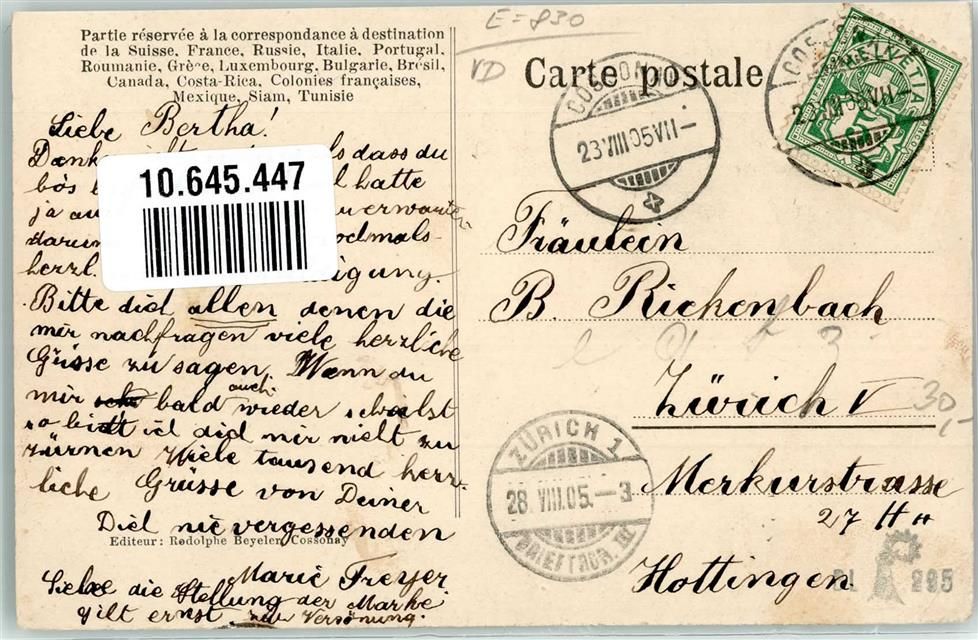 Partie réservée à la correspondance à destination
de la Suisse, France, Russie, Italie, Portugal,
Roumanie, Grèce, Luxembourg, Bulgarie, Brésil,
Canada, Costa-Rica, Colonies françaises,
Mexique, Siam, Tunisie
E=830
VD
Carte postale
COSSONAY
23 VIII 05 VII -
COSSONAY
23 VIII 05 VII -
HELVETIA
Liebe Bertha!
dass du
bös hatte
ja
10.645.447
herzl.
Bitte dich allen denen die
mir nachfragen viele herzliche
Grüsse zu sagen. Wenn du
mir auch bald wieder schreibst
so bidt ich dich mir nicht zu
zürnen Viele tausend herz-
liche Grüsse von Deiner
Dich nie vergessenden
Editeur: Rodolphe Beyeler, Cossonay
Marie Freyer
Siehe die Stellung der Marke
gilt ernst zur Versönung.
Fräulein
B. Rickenbach
Zürich V
30,-
Merkurstrasse
27 H
Hottingen
ZÜRICH 1
28. VIII. 05. - 3
BRIEFTRÄG. III
295